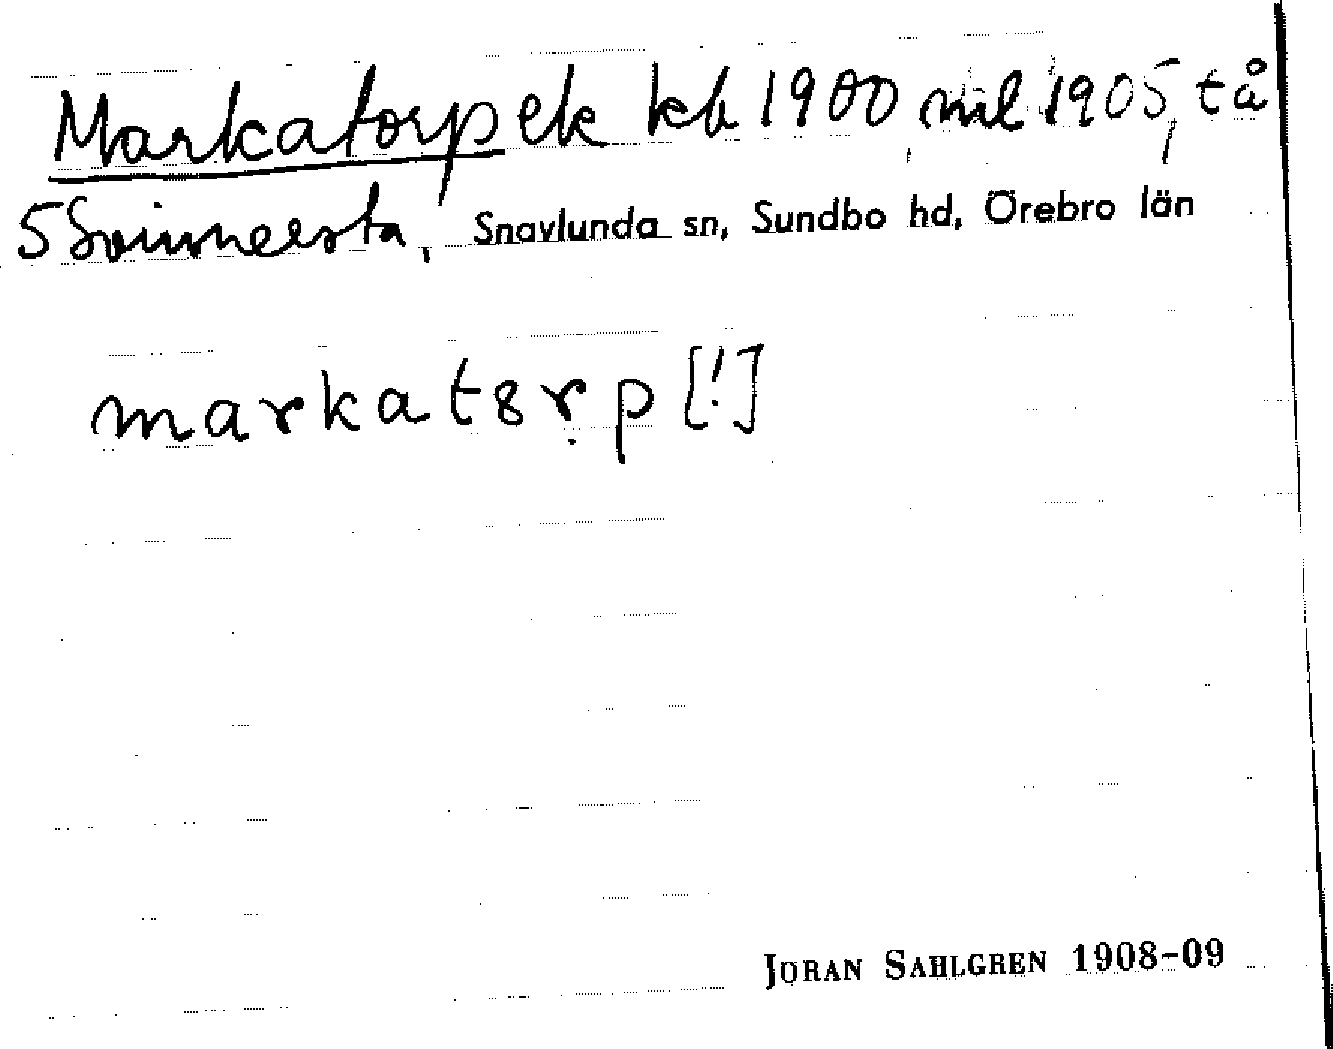 Markatorp ek kb 1900, mil 1905, tå
5 Svinnersta, Snavlunda sn, Sundbo hd, Örebro län
markatȣrp [!]
JÖRAN SAHLGREN 1908-09